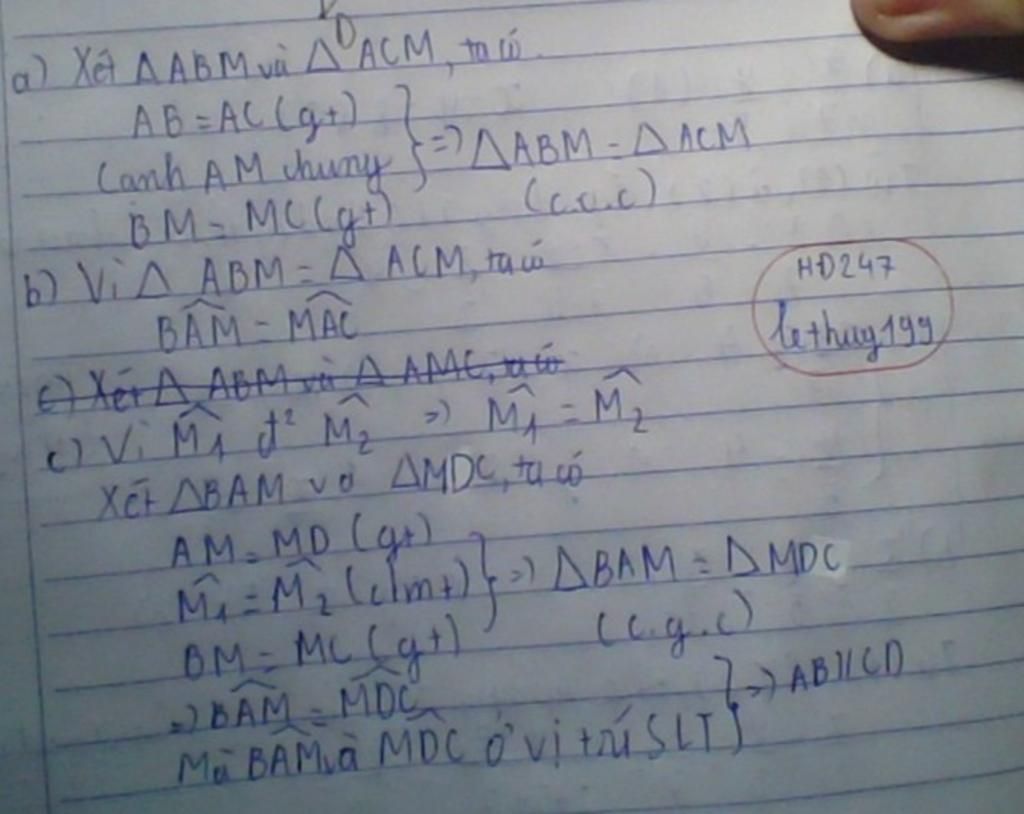 D
a) Xét ΔABM và ΔACM, ta có
AB = AC (gt)
Cạnh AM chung } => ΔABM = ΔACM
BM = MC (gt) (c.c.c)
b) Vì Δ ABM = Δ ACM, ta có
BAM = MAC
HĐ247
lethuy199
c) Xét Δ ABM và Δ AMC, ta có
c) Vì M1 đ² M2 => M1 = M2
Xét ΔBAM và ΔMDC, ta có
AM = MD (gt)
M1 = M2 (cmt) } => ΔBAM = ΔMDC
BM = MC (gt) (c.g.c)
=> BAM = MDC } => AB // CD
Mà BAM và MDC ở vị trí SLT